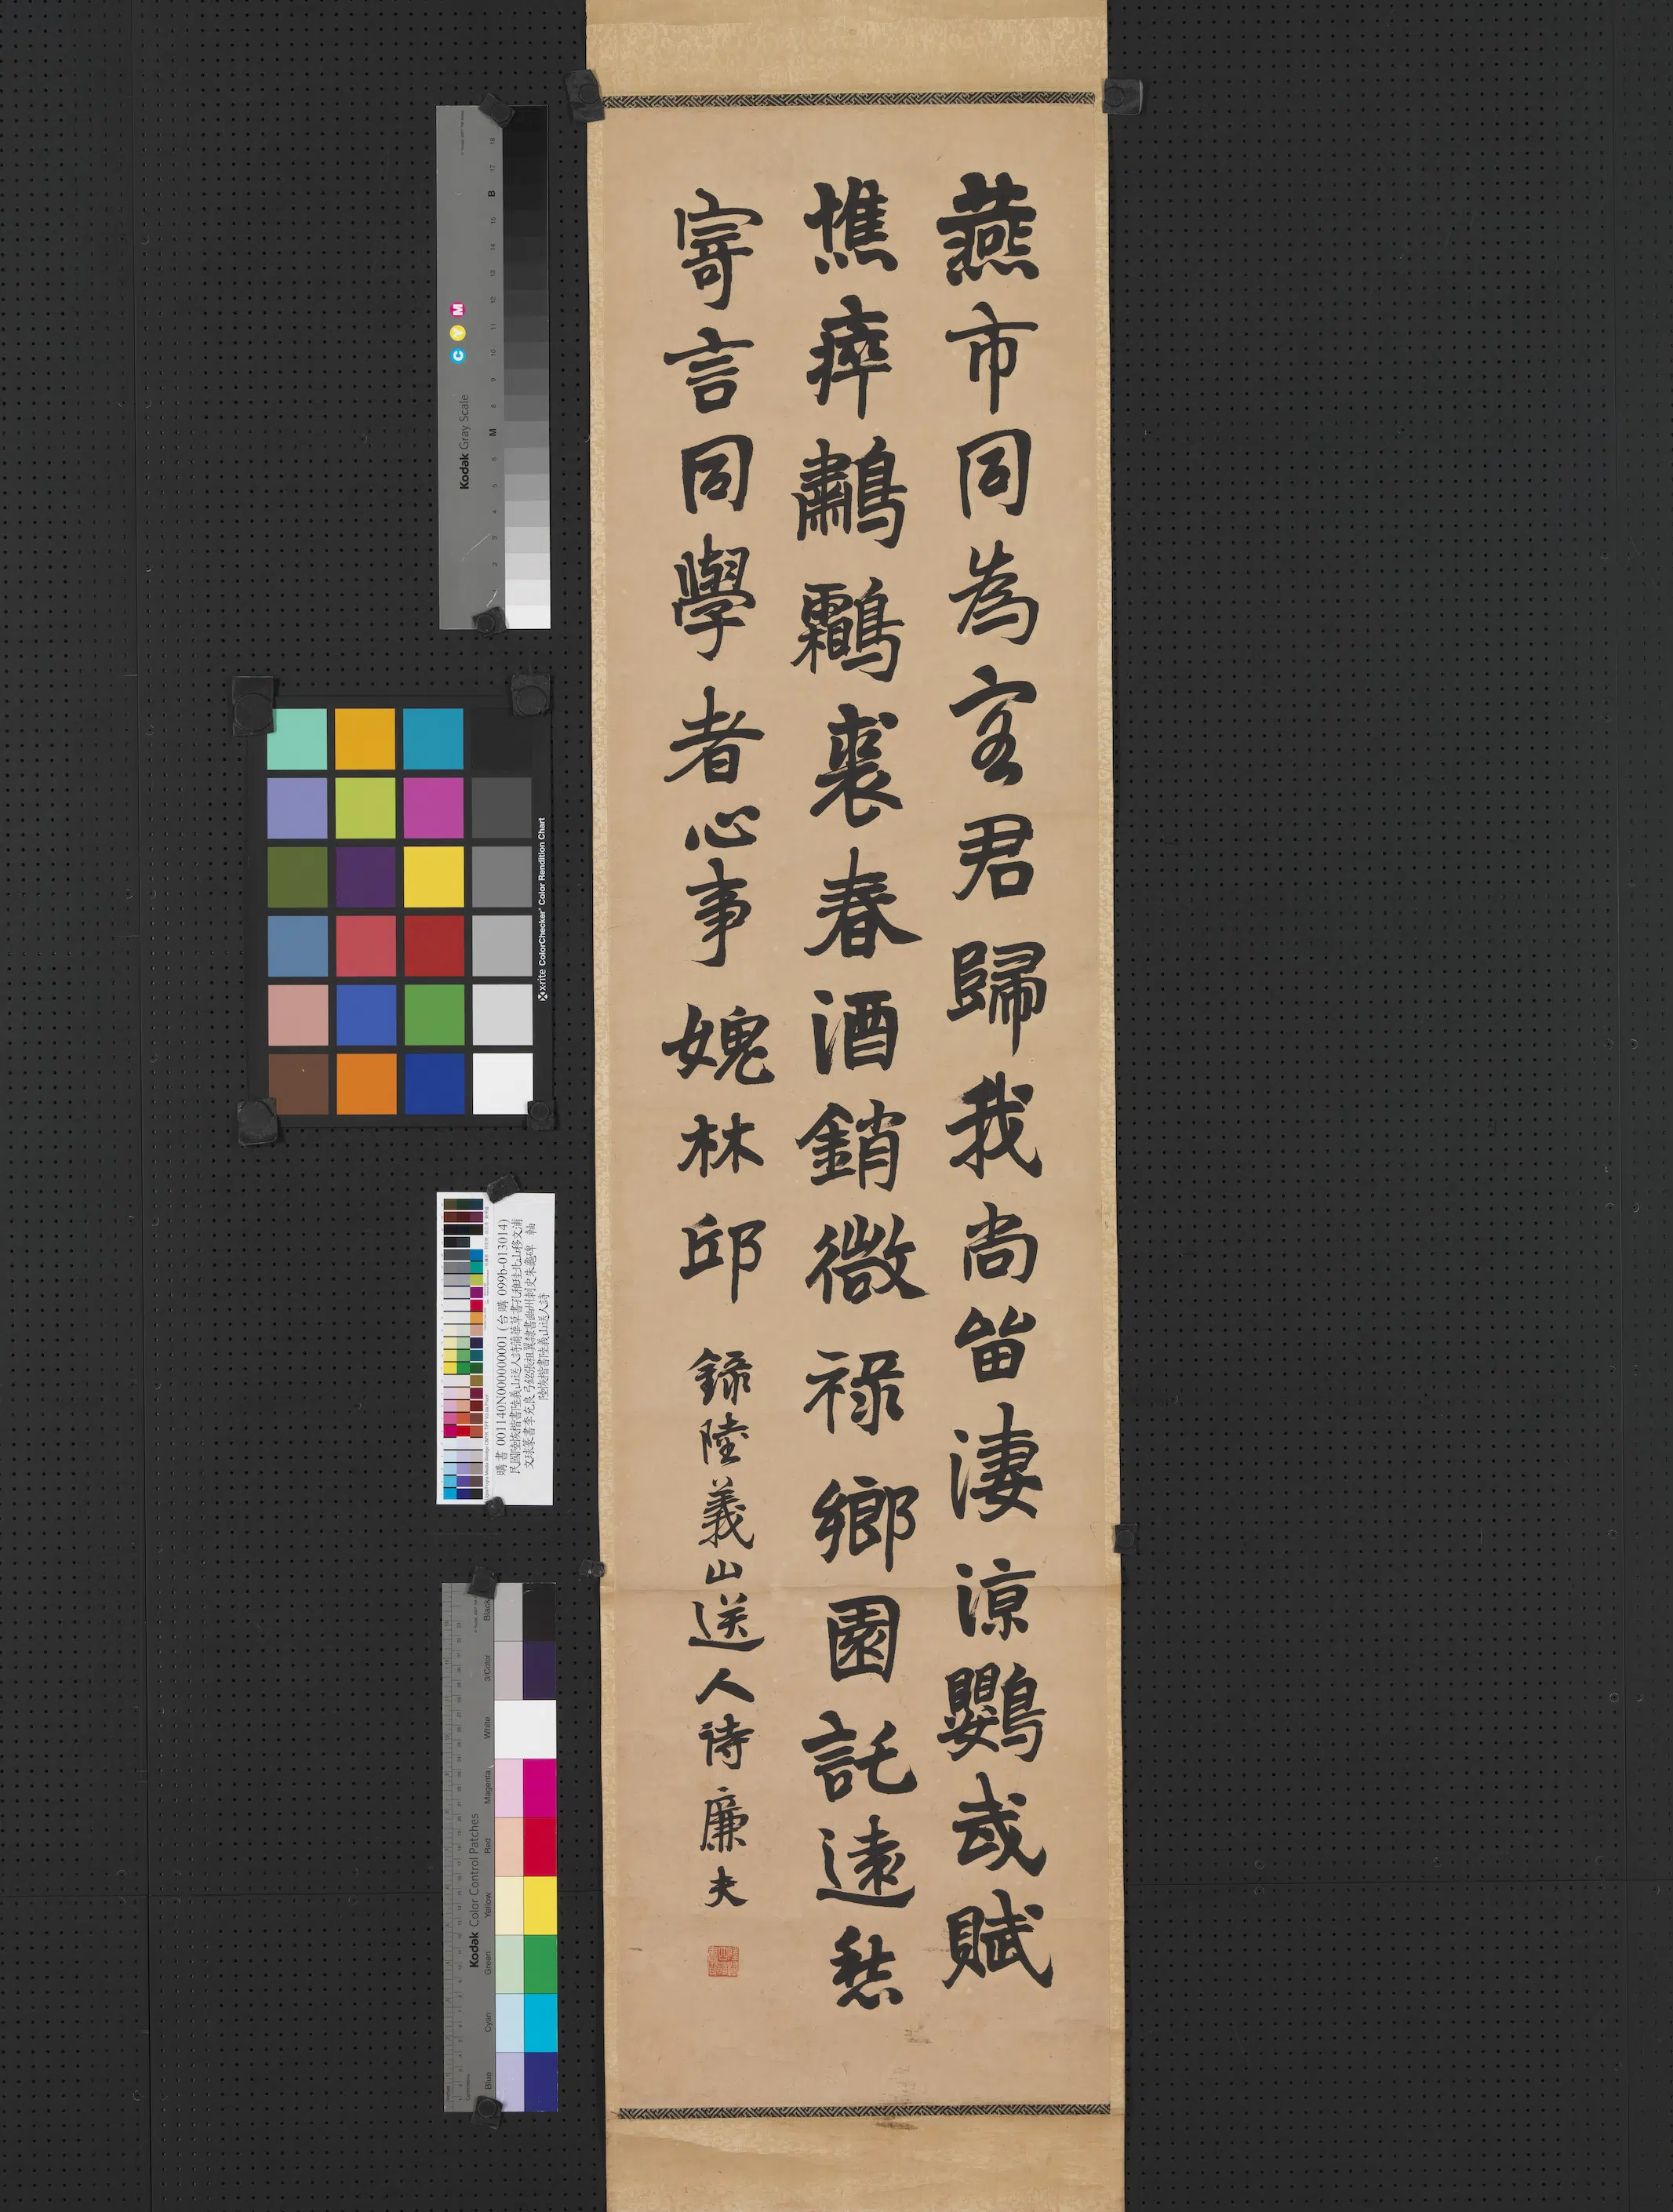 燕市同為客君歸我尚留淒涼鸚武賦
憔瘁鷫鸘裘春酒銷微祿鄉園託遠愁
寄言同學者心事媿林邱
錄陸義山送人詩廉夫
Kodak Gray Scale
C Y M
x-rite ColorChecker Color Rendition Chart
購書 001140N000000001 (台購 099b-013014)
民國陸恢楷書陸義山送人詩蒲華草書孔稚珪北山移文浦
文球篆書李充良弓銘張祖翼隸書幽州刺史朱龜碑 軸
陸恢楷書陸義山送人詩
Kodak Color Control Patches
Blue Cyan Green Yellow Red Magenta White 3/Color Black